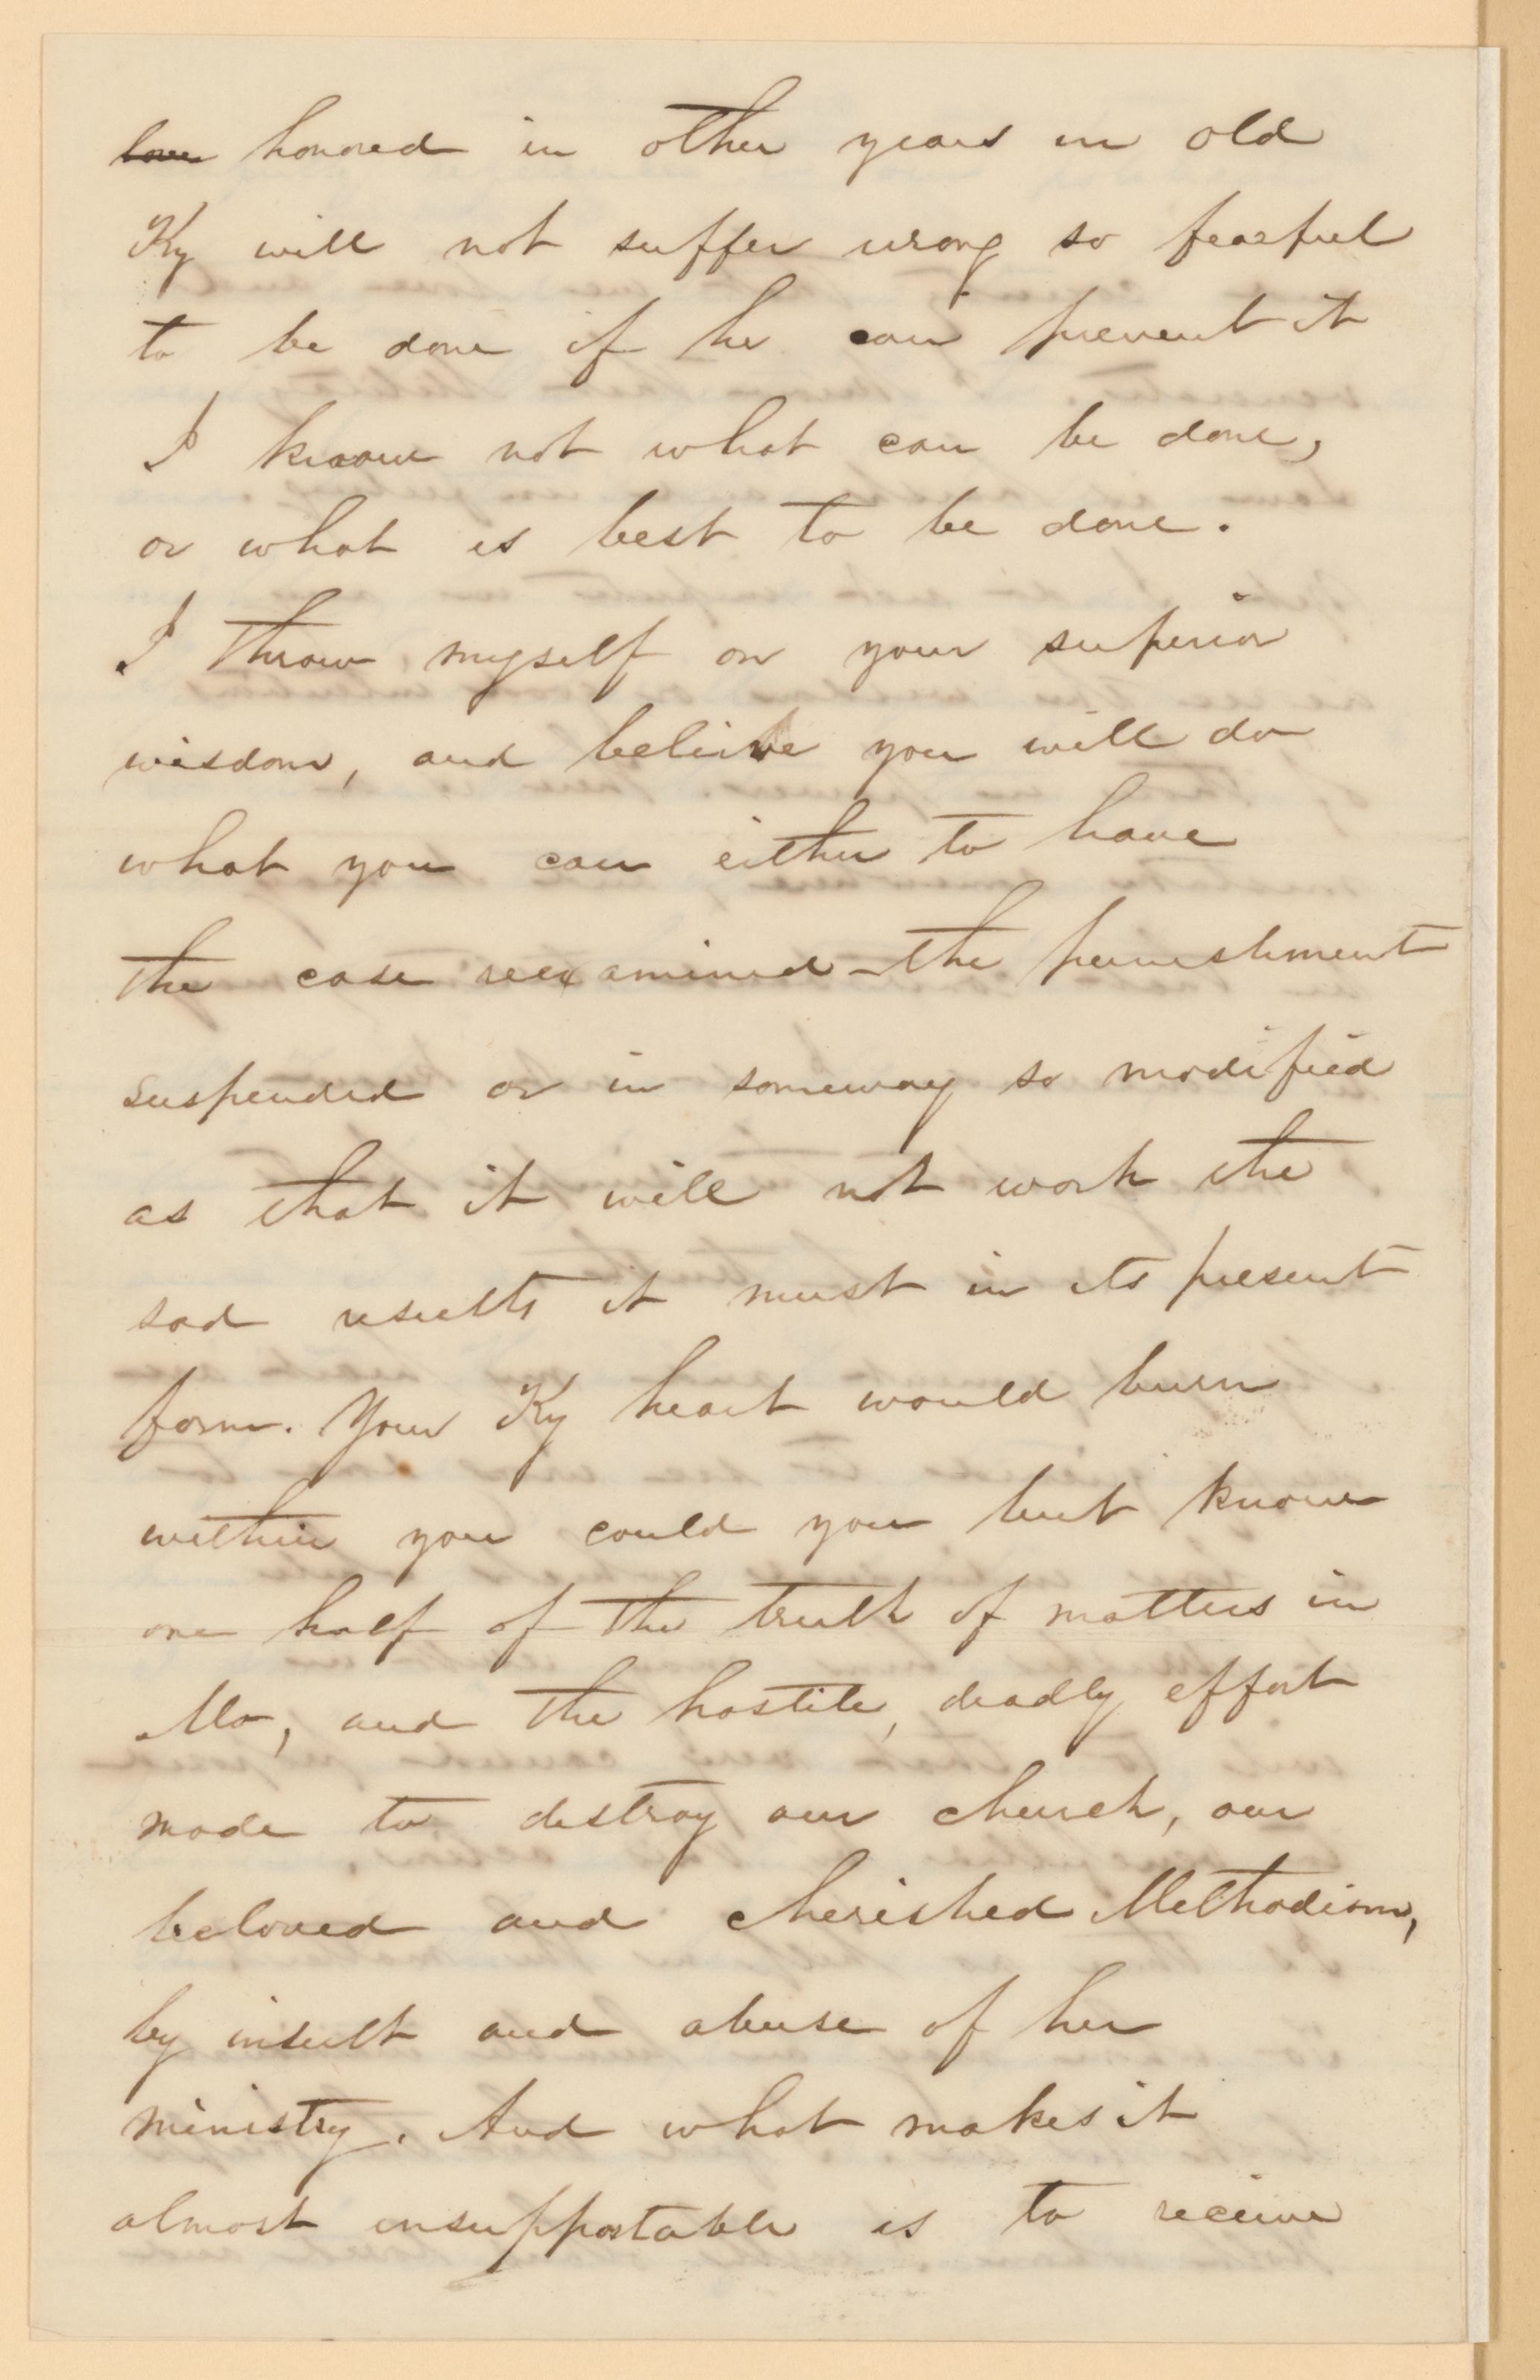 love honored in other years in old
Ky will not suffer wrong so fearful
to be done if he can prevent it
I know not what can be done,
or what is best to be done.
I throw myself on your superior
wisdom, and believe you will do
what you can either to have
the case reexamined - the punishment
suspended or in someway so modified
as that it will not work the
sad results it must in its present
form. Your Ky heart would burn
within you could you but know
one half of the truth of matters in
Mo, and the hostile, deadly effort
made to destroy our church, our
beloved and cherished Methodism,
by insult and abuse of her
ministry. And what makes it
almost insupportable is to receive